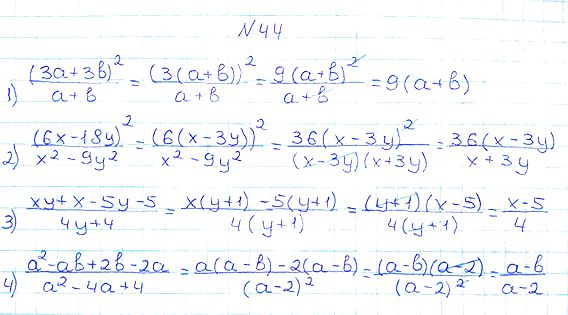 №44
1) (3a+3b)²/(a+b) = (3(a+b))²/(a+b) = 9(a+b)²/(a+b) = 9(a+b)
2) (6x-18y)²/(x²-9y²) = (6(x-3y))²/(x²-9y²) = 36(x-3y)²/((x-3y)(x+3y)) = 36(x-3y)/(x+3y)
3) (xy+x-5y-5)/(4y+4) = (x(y+1)-5(y+1))/(4(y+1)) = ((y+1)(x-5))/(4(y+1)) = (x-5)/4
4) (a²-ab+2b-2a)/(a²-4a+4) = (a(a-b)-2(a-b))/(a-2)² = ((a-b)(a-2))/(a-2)² = (a-b)/(a-2)